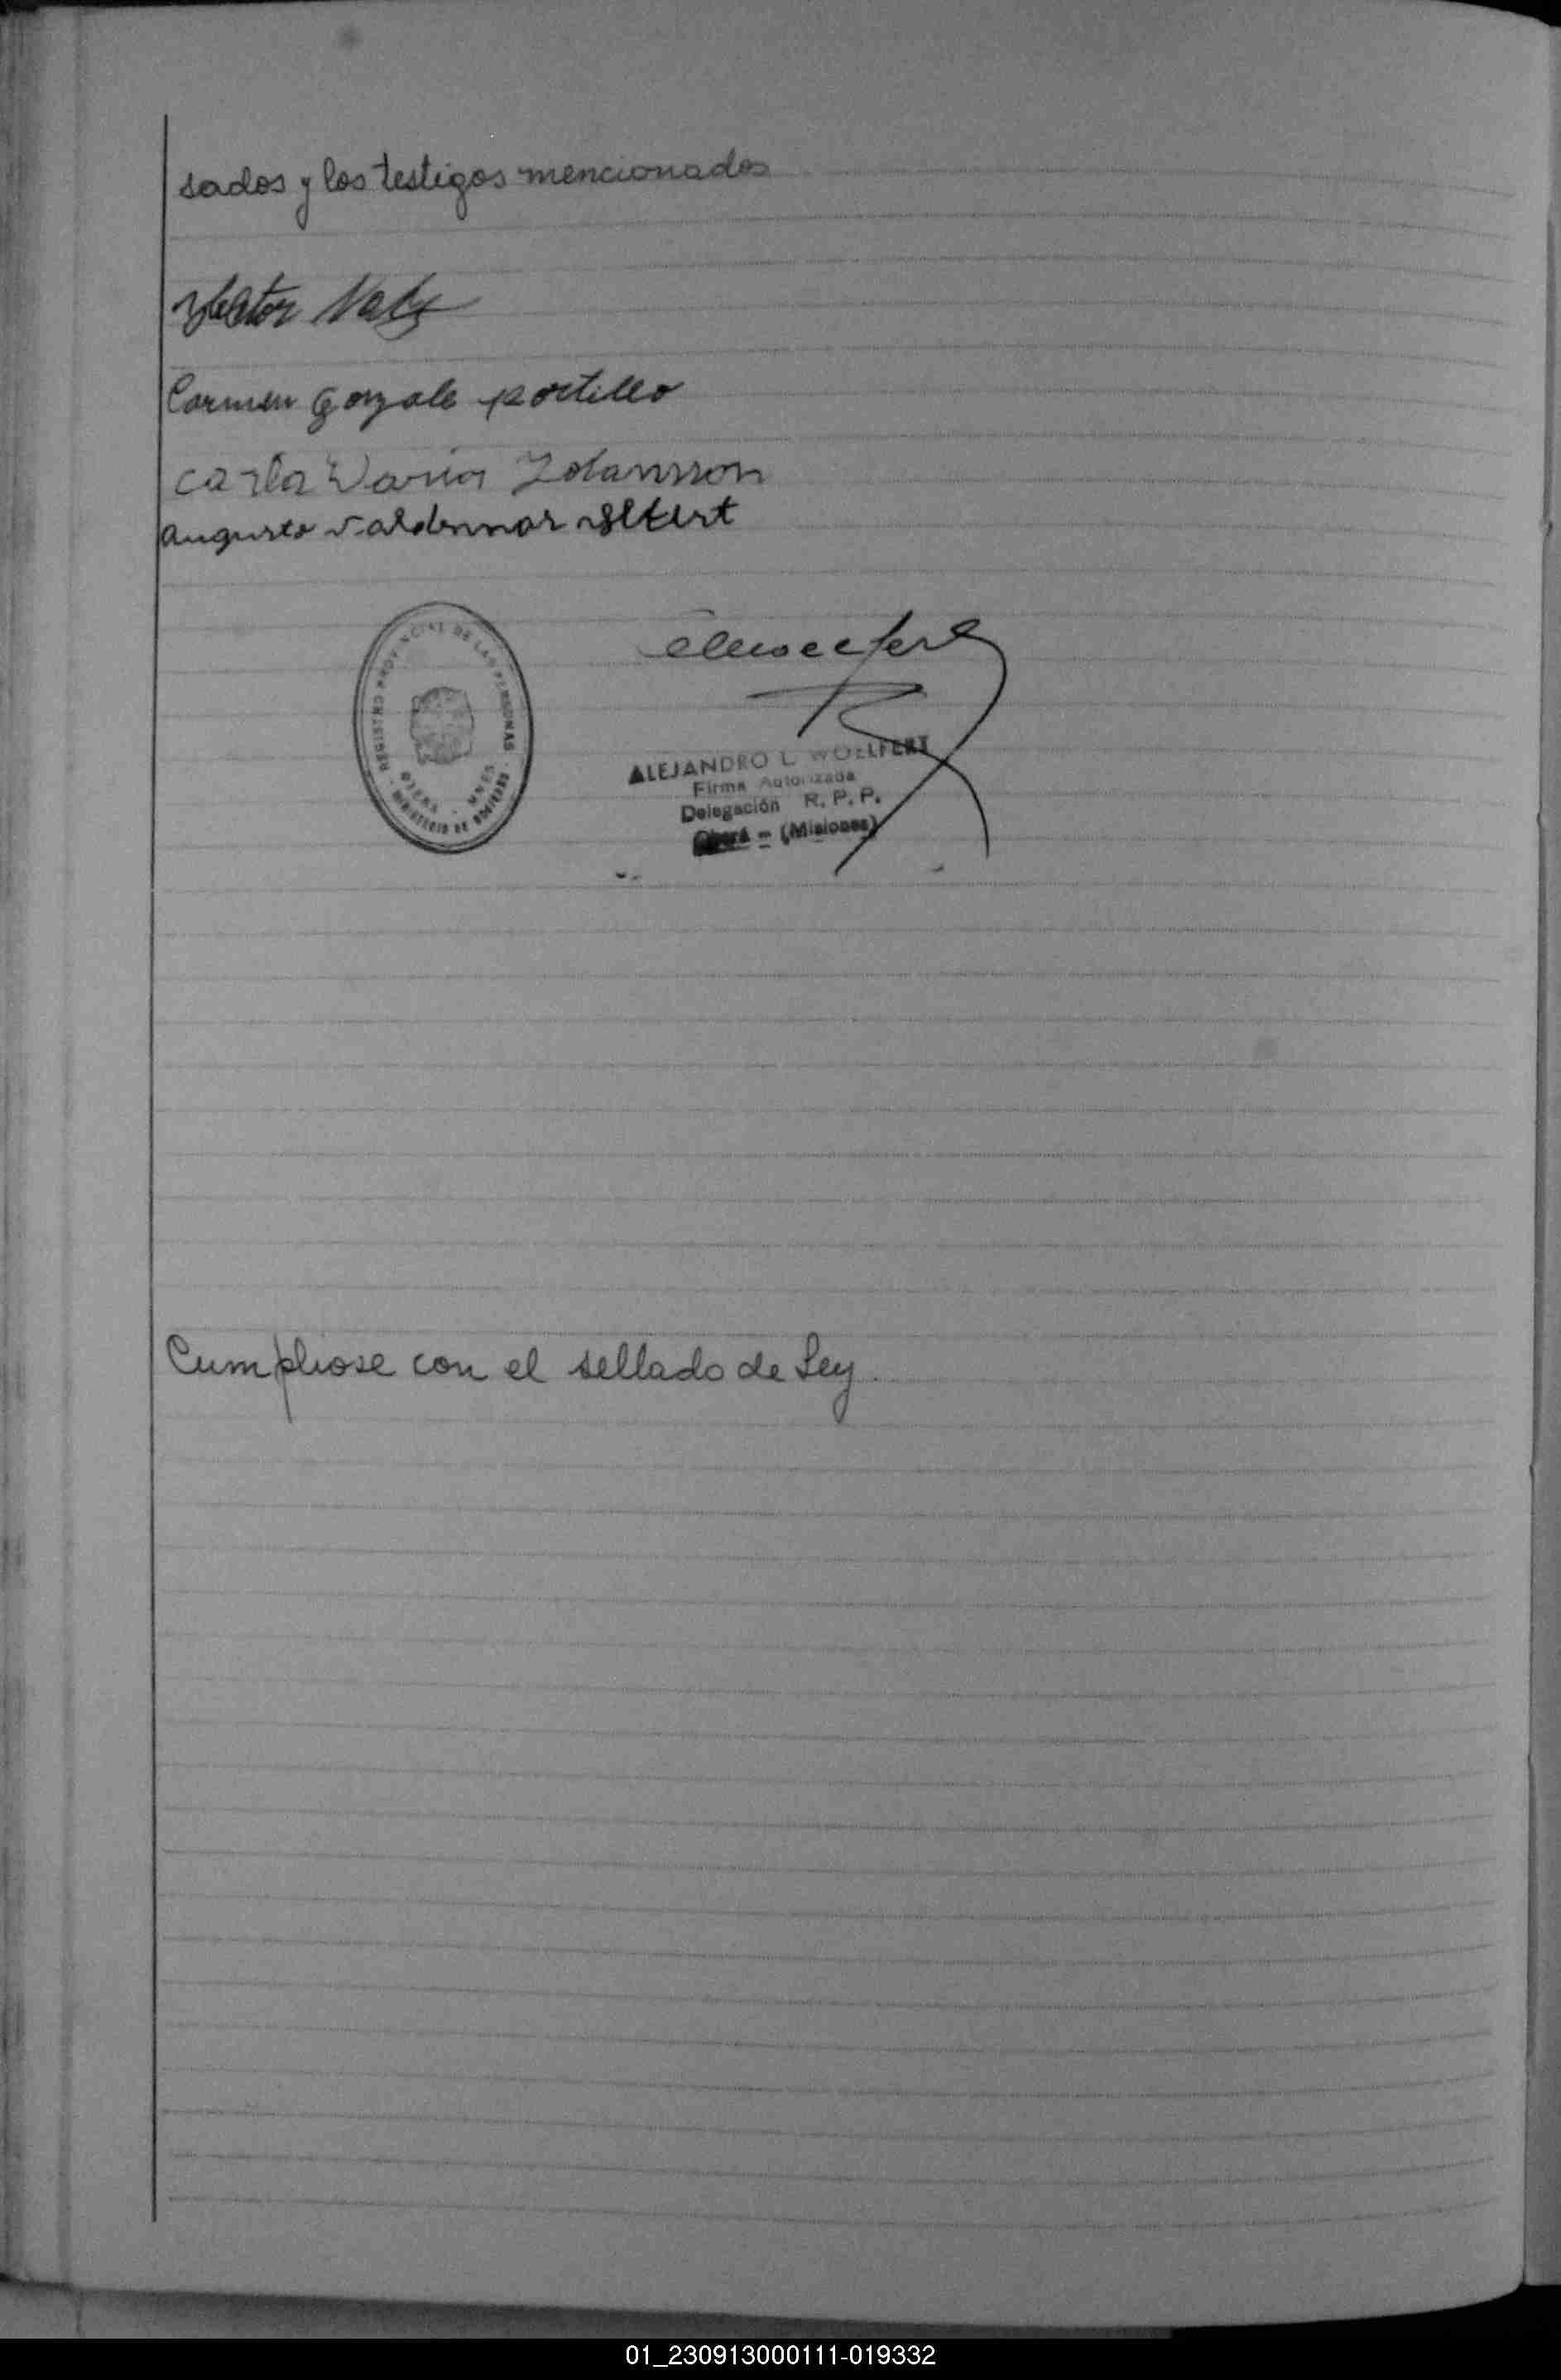 sados y los testigos mencionados
Hector
Carmen Gonzale portillo
Carla
augusto valdemar
REGISTRO PROVINCIAL DE LAS PERSONAS
MINISTERIO DE GOBIERNO
ALEJANDRO L. WOELFERT
Firma Autorizada
Delegación R. P. P.
Oberá - (Misiones)
Cumpliose con el sellado de Ley.
01_230913000111-019332